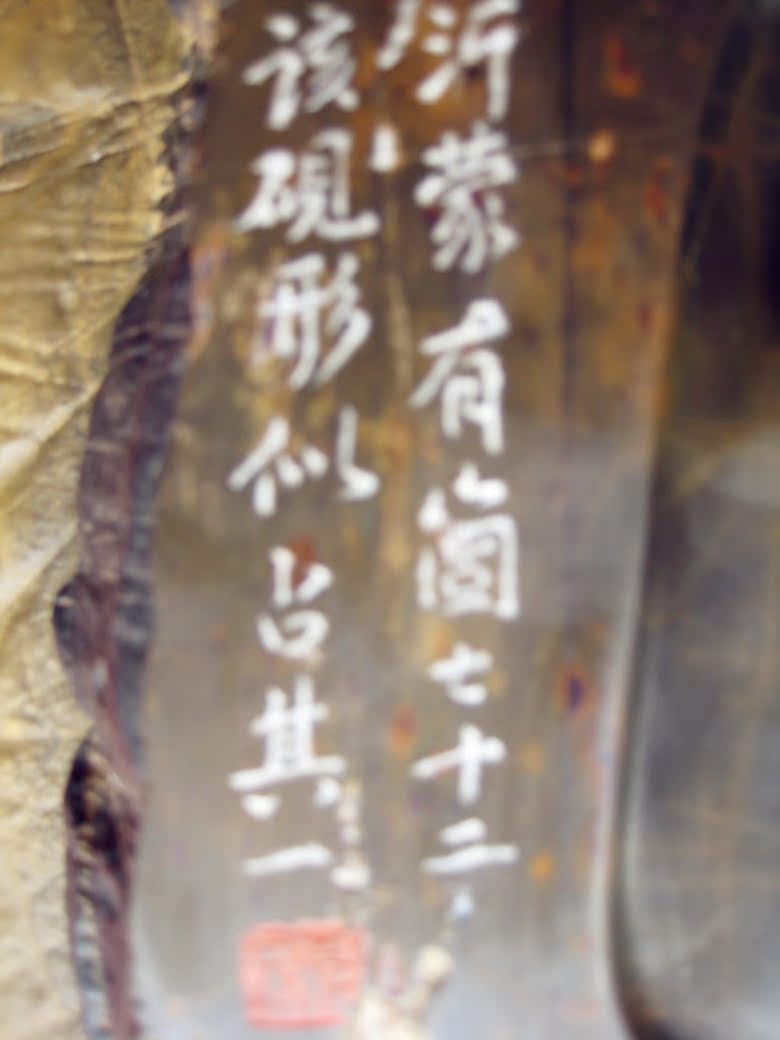 沂蒙有崮七十二
该硯形似占其一